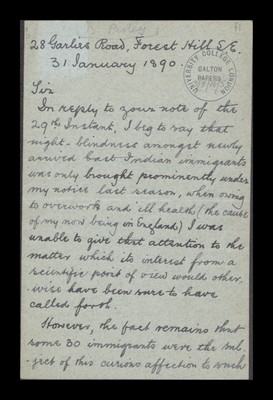 28 Garlies Road, Forest Hill S.E.
31 January 1890.
UNIVERSITY COLLEGE LONDON
GALTON
PAPERS
Sir
In reply to your note of the
29th Instant, I beg to say that
night-blindness amongst newly
arrived East Indian immigrants
was only brought prominently under
my notice last season, when owing
to overwork and ill health (the cause
of my now being in England) I was
unable to give that attention to the
matter which its interest from a
scientific point of view would other,
-wise have been sure to have
called forth.
However, the fact remains that
some 30 immigrants were the sub-
-ject of this curious affection to such